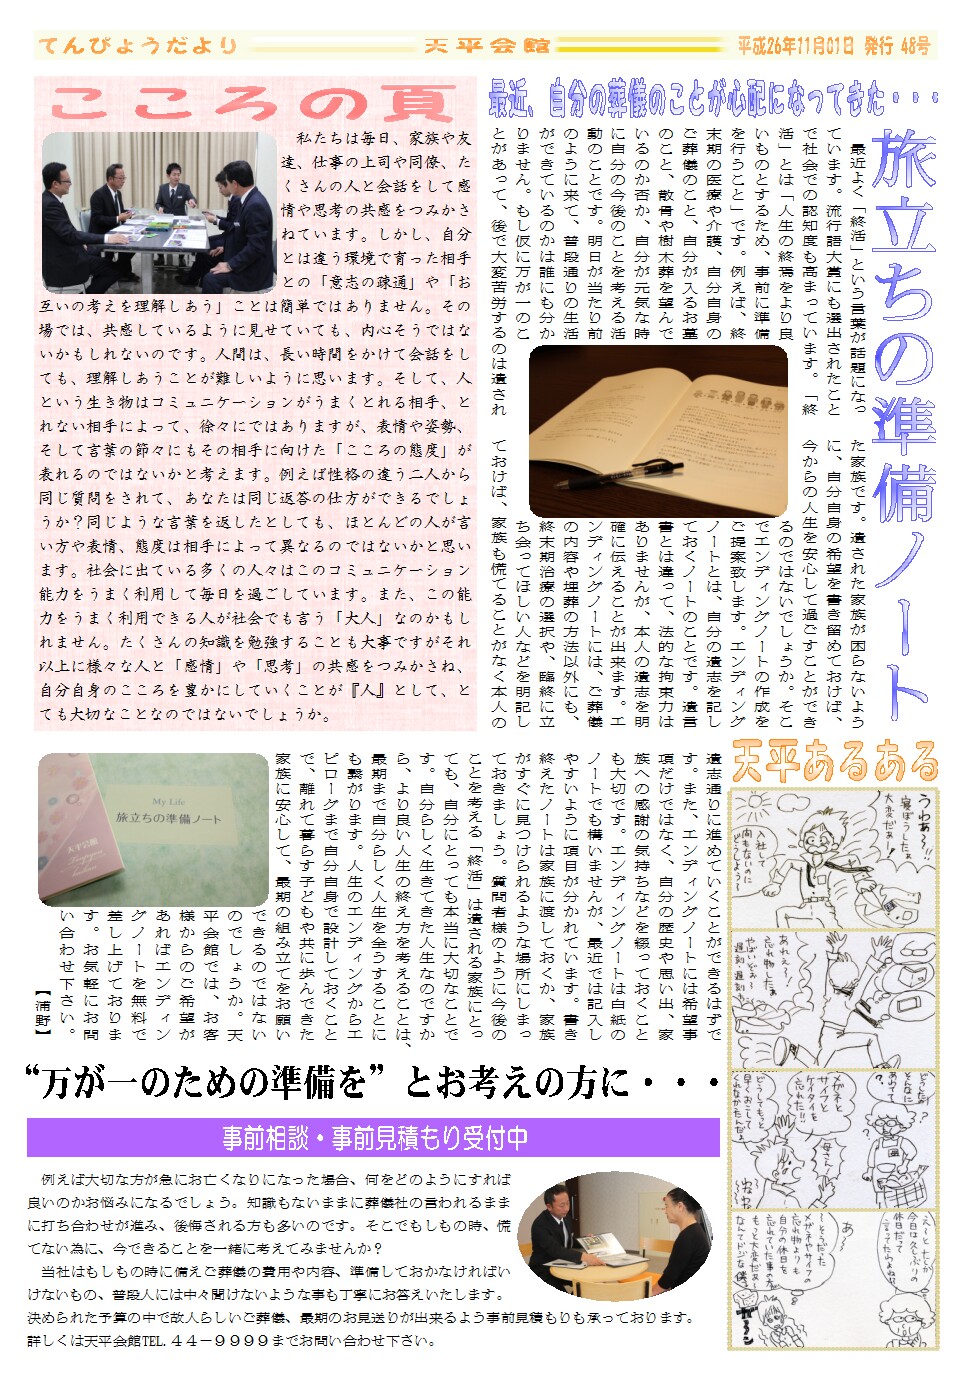 てんぴょうだより
天平会館
平成26年11月01日 発行 48号
こころの頁
私たちは毎日、家族や友
達、仕事の上司や同僚、た
くさんの人と会話をして感
情や思考の共感をつみかさ
ねています。しかし、自分
とは違う環境で育った相手
との「意志の疎通」や「お
互いの考えを理解しあう」ことは簡単ではありません。その
場では、共感しているように見せていても、内心そうではな
いかもしれないのです。人間は、長い時間をかけて会話をし
ても、理解しあうことが難しいように思います。そして、人
という生き物はコミュニケーションがうまくとれる相手、と
れない相手によって、徐々にではありますが、表情や姿勢、
そして言葉の節々にもその相手に向けた「こころの態度」が
表れるのではないかと考えます。例えば性格の違う二人から
同じ質問をされて、あなたは同じ返答の仕方ができるでしょ
うか？同じような言葉を返したとしても、ほとんどの人が言
い方や表情、態度は相手によって異なるのではないかと思い
ます。社会に出ている多くの人々はこのコミュニケーション
能力をうまく利用して毎日を過ごしています。また、この能
力をうまく利用できる人が社会でも言う「大人」なのかもし
れません。たくさんの知識を勉強することも大事ですがそれ
以上に様々な人と「感情」や「思考」の共感をつみかさね、
自分自身のこころを豊かにしていくことが『人』として、と
ても大切なことなのではないでしょうか。
最近、自分の葬儀のことが心配になってきた・・・
旅立ちの準備ノート
最近よく「終活」という言葉が話題になっ
ています。流行語大賞にも選出されたこと
で社会での認知度も高まっています。「終
活」とは「人生の終焉をより良
いものとするため、事前に準備
を行うこと」です。例えば、終
末期の医療や介護、自分自身の
ご葬儀のこと、自分が入るお墓
のこと、散骨や樹木葬を望んで
いるのか否か、自分が元気な時
に自分の今後のことを考える活
動のことです。明日が当たり前
のように来て、普段通りの生活
ができているのかは誰にも分か
りません。もし仮に万が一のこ
とがあって、後で大変苦労するのは遺され
た家族です。遺された家族が困らないよう
に、自分自身の希望を書き留めておけば、
今からの人生を安心して過ごすことができ
るのではないでしょうか。そこ
でエンディングノートの作成を
ご提案致します。エンディング
ノートとは、自分の遺志を記し
ておくノートのことです。遺言
書とは違って、法的な拘束力は
ありませんが、本人の遺志を明
確に伝えることが出来ます。エ
ンディングノートには、ご葬儀
の内容や埋葬の方法以外にも、
終末期治療の選択や、臨終に立
ち会ってほしい人などを明記し
ておけば、家族も慌てることがなく本人の
遺志通りに進めていくことができるはずで
す。また、エンディングノートには希望事
項だけではなく、自分の歴史や思い出、家
族への感謝の気持ちなどを綴っておくこと
も大切です。エンディングノートは白紙の
ノートでも構いませんが、最近では記入し
やすいように項目が分かれています。書き
終えたノートは家族に渡しておくか、家族
がすぐに見つけられるような場所にしまっ
ておきましょう。質問者様のように今後の
ことを考える「終活」は遺される家族にとっ
ても、自分にとっても本当に大切なことで
す。自分らしく生きてきた人生なのですか
ら、より良い人生の終え方を考えることは、
最期まで自分らしく人生を全うすることに
も繋がります。人生のエンディングからエ
ピローグまで自分自身で設計しておくこと
で、離れて暮らす子どもや共に歩んできた
家族に安心して、最期の組み立てをお願い
できるのではない
のでしょうか。天
平会館では、お客
様からのご希望が
あればエンディン
グノートを無料で
差し上げておりま
す。お気軽にお問
い合わせ下さい。
【浦野】
My Life
旅立ちの準備ノート
天平会館
天平あるある
うわぁ～!!
寝ぼうしたぁ
大変だぁー!
入社して
間もないのに
どうしよう～
あれぇ～!
忘れ物したぁ
やばいぞぉ～
遅刻・遅刻
どうしたの?
そんなに
あわてて?
メガネと
サイフと
ケイタイを
忘れた!!
母さん!
どうしてもっと
早くおこして
くれなかったんだよ
え～と、たしか
今日は久しぶりの
休日だって
言ってたわよね!?
あ～
～そうだった
メガネやサイフの
忘れ物よりも
自分の休日を
忘れていた事の方が
もっと大変だぁ～
なんてドジな僕
ガーン
“万が一のための準備を”とお考えの方に・・・
事前相談・事前見積もり受付中
例えば大切な方が急にお亡くなりになった場合、何をどのようにすれば
良いのかお悩みになるでしょう。知識もないままに葬儀社の言われるまま
に打ち合わせが進み、後悔される方も多いのです。そこでもしもの時、慌
てない為に、今できることを一緒に考えてみませんか？
当社はもしもの時に備えご葬儀の費用や内容、準備しておかなければい
けないもの、普段人には中々聞けないような事も丁寧にお答えいたします。
決められた予算の中で故人らしいご葬儀、最期のお見送りが出来るよう事前見積もりも承っております。
詳しくは天平会館TEL.４４－９９９９までお問い合わせ下さい。